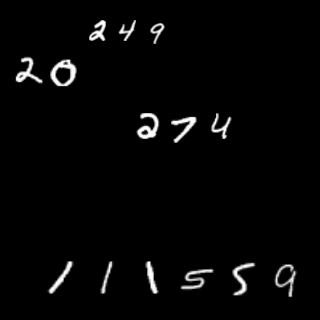 249
20
274
111559